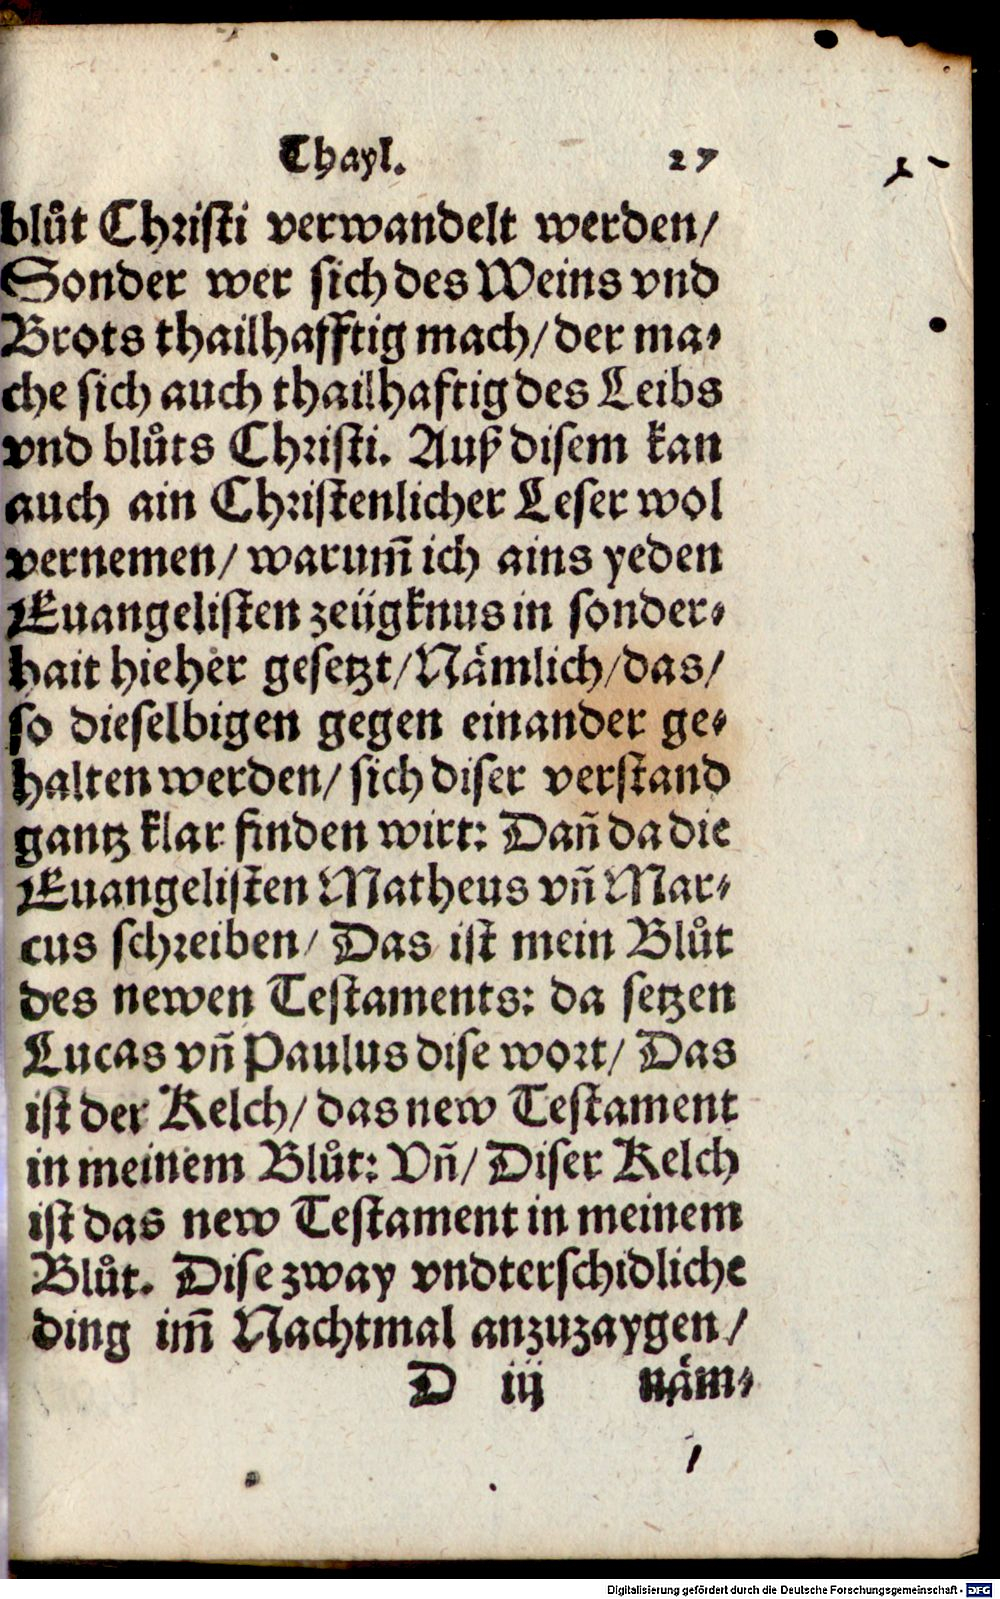 Thayl. 27
blůt Christi verwandelt werden/
Sonder wer sich des Weins vnd
Brots thailhafftig mach/ der ma-
che sich auch thailhaftig des Leibs
vnd blůts Christi. Auß disem kan
auch ain Christenlicher Leser wol
vernemen/ warum̃ ich ains yeden
Euangelisten zeügknus in sonder-
hait hieher gesetzt/ Nämlich/ das/
so dieselbigen gegen einander ge-
halten werden/ sich diser verstand
gantz klar finden wirt: Dañ da die
Euangelisten Matheus vñ Mar-
cus schreiben/ Das ist mein Blůt
des newen Testaments: da setzen
Lucas vñ Paulus dise wort/ Das
ist der Kelch/ das new Testament
in meinem Blůt: Vñ/ Diser Kelch
ist das new Testament in meinem
Blůt. Dise zway vndterschidliche
ding im̃ Nachtmal anzuzaygen/
D iij näm-
Digitalisierung gefördert durch die Deutsche Forschungsgemeinschaft - DFG